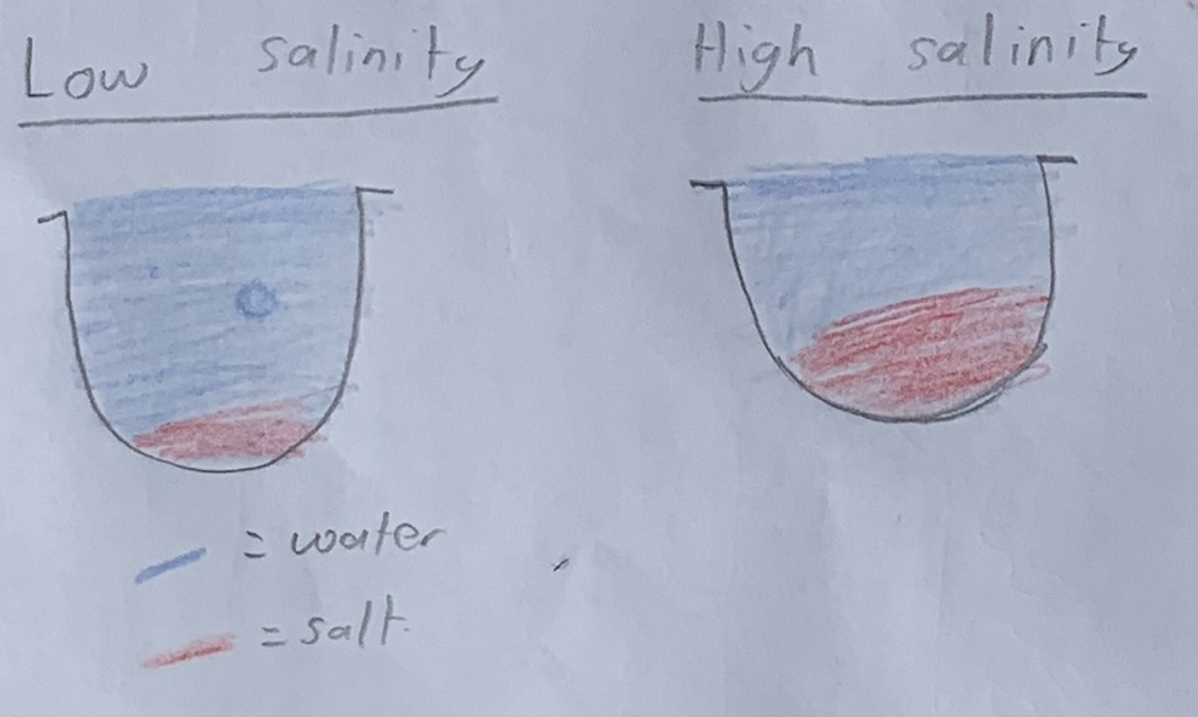 Low salinity
High salinity
= water
= salt.